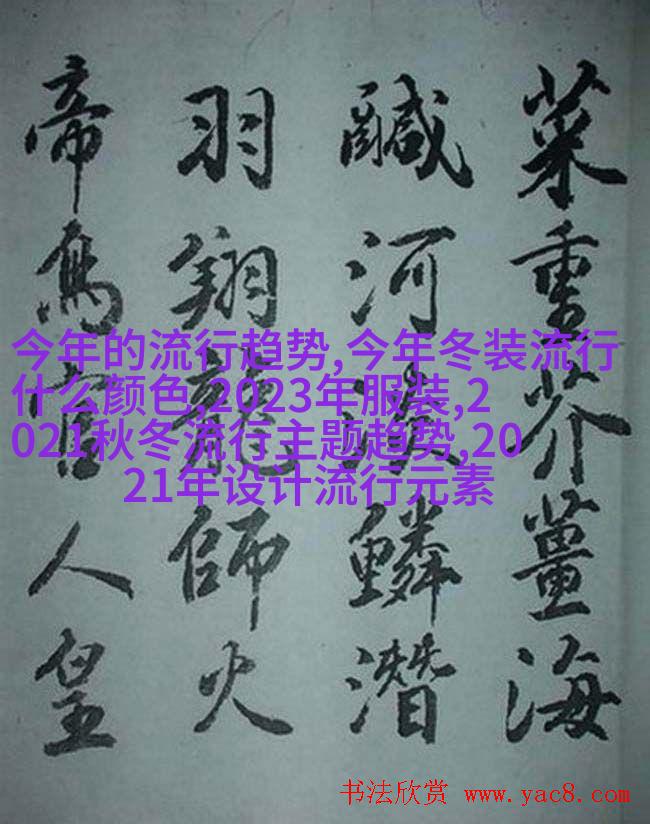 菜重芥薑海
鹹河淡鱗潛
羽翔龍師火
帝鳥官人皇
今年的流行趋势,今年冬装流行
什么颜色,2023年服装,2
021秋冬流行主题趋势,20
21年设计流行元素
书法欣赏 www.yac8.com